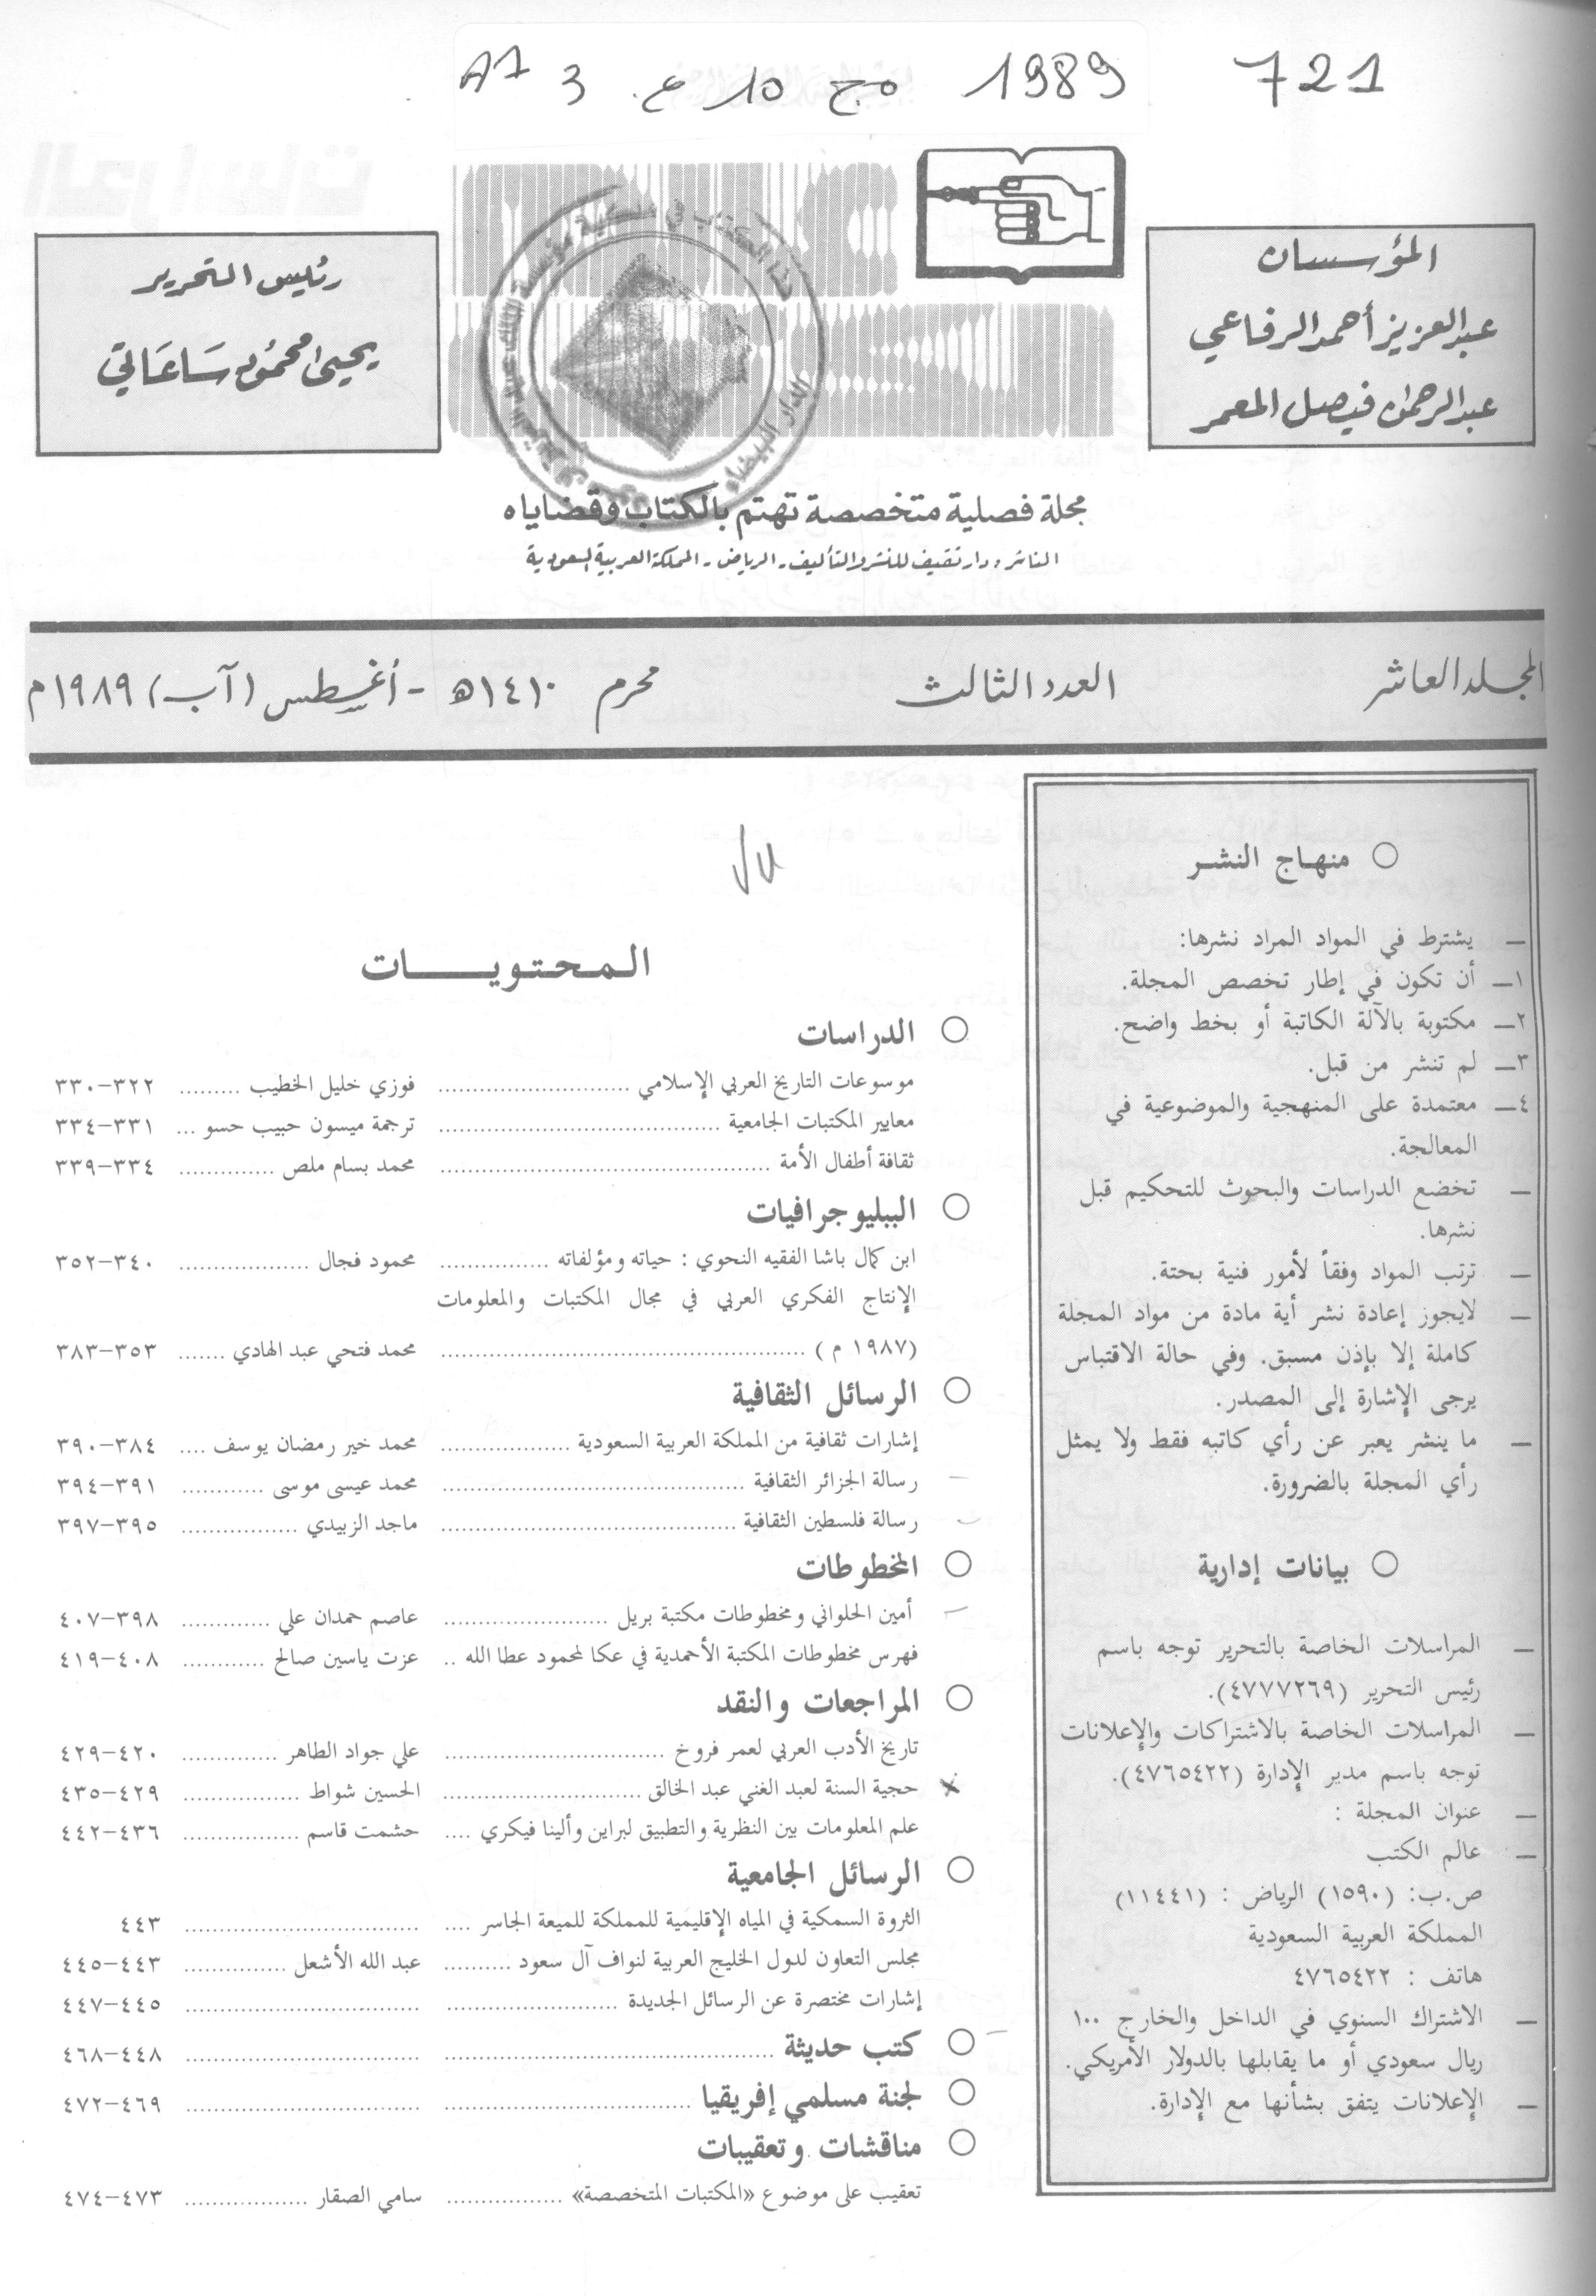 721 1989 مج 10 ع. 3 A1
المؤسسان
عبدالعزيز أحمد الرفاعي
عبدالرحمان فيصل المعمر
رئيس التحرير
يحيى محمود ساعاتي
الدار البيضاء
مجلة فصلية متخصصة تهتم بالكتاب وقضاياه
الناشر: دار ثقيف للنشر والتأليف - الرياض - المملكة العربية السعودية
المجلد العاشر العدد الثالث محرم ١٤١٠هـ - أغسطس (آب) ١٩٨٩م
منهاج النشر
— يشترط في المواد المراد نشرها:
١— أن تكون في إطار تخصص المجلة.
٢— مكتوبة بالآلة الكاتبة أو بخط واضح.
٣— لم تنشر من قبل.
٤— معتمدة على المنهجية والموضوعية في
المعالجة.
— تخضع الدراسات والبحوث للتحكيم قبل
نشرها.
— ترتب المواد وفقاً لأمور فنية بحتة.
— لايجوز إعادة نشر أية مادة من مواد المجلة
كاملة إلا بإذن مسبق. وفي حالة الاقتباس
يرجى الإشارة إلى المصدر.
— ما ينشر يعبر عن رأي كاتبه فقط ولا يمثل
رأي المجلة بالضرورة.
بيانات إدارية
— المراسلات الخاصة بالتحرير توجه باسم
رئيس التحرير (٤٧٧٧٢٦٩).
— المراسلات الخاصة بالاشتراكات والإعلانات
توجه باسم مدير الإدارة (٤٧٦٥٤٢٢).
— عنوان المجلة :
— عالم الكتب
ص.ب: (١٥٩٠) الرياض : (١١٤٤١)
المملكة العربية السعودية
هاتف : ٤٧٦٥٤٢٢
— الاشتراك السنوي في الداخل والخارج ١٠٠
ريال سعودي أو ما يقابلها بالدولار الأمريكي.
— الإعلانات يتفق بشأنها مع الإدارة.
المحتويات
الدراسات
موسوعات التاريخ العربي الإسلامي ........ فوزي خليل الخطيب ........ ٣٢٢-٣٣٠
معايير المكتبات الجامعية ........ ترجمة ميسون حبيب حسو ... ٣٣١-٣٣٤
ثقافة أطفال الأمة ........ محمد بسام ملص ........ ٣٣٤-٣٣٩
الببليوجرافيات
ابن كمال باشا الفقيه النحوي : حياته ومؤلفاته ........ محمود فجال ........ ٣٤٠-٣٥٢
الإنتاج الفكري العربي في مجال المكتبات والمعلومات
(١٩٨٧ م) ........ محمد فتحي عبد الهادي ....... ٣٥٣-٣٨٣
الرسائل الثقافية
إشارات ثقافية من المملكة العربية السعودية ........ محمد خير رمضان يوسف .... ٣٨٤-٣٩٠
رسالة الجزائر الثقافية ........ محمد عيسى موسى ........ ٣٩١-٣٩٤
رسالة فلسطين الثقافية ........ ماجد الزبيدي ........ ٣٩٥-٣٩٧
المخطوطات
أمين الحلواني ومخطوطات مكتبة بريل ........ عاصم حمدان علي ........ ٣٩٨-٤٠٧
فهرس مخطوطات المكتبة الأحمدية في عكا لمحمود عطا الله .. عزت ياسين صالح ........ ٤٠٨-٤١٩
المراجعات والنقد
تاريخ الأدب العربي لعمر فروخ ........ علي جواد الطاهر ........ ٤٢٠-٤٢٩
حجية السنة لعبد الغني عبد الخالق ........ الحسين شواط ........ ٤٢٩-٤٣٥
علم المعلومات بين النظرية والتطبيق لبراين وألينا فيكري .... حشمت قاسم ........ ٤٣٦-٤٤٢
الرسائل الجامعية
الثروة السمكية في المياه الإقليمية للمملكة للميعة الجاسر .... ........ ٤٤٣
مجلس التعاون لدول الخليج العربية لنواف آل سعود ........ عبد الله الأشعل ........ ٤٤٣-٤٤٥
إشارات مختصرة عن الرسائل الجديدة ........ ٤٤٥-٤٤٧
كتب حديثة ........ ٤٤٨-٤٦٨
لجنة مسلمي إفريقيا ........ ٤٦٩-٤٧٢
مناقشات وتعقيبات
تعقيب على موضوع «المكتبات المتخصصة» ........ سامي الصقار ........ ٤٧٣-٤٧٤